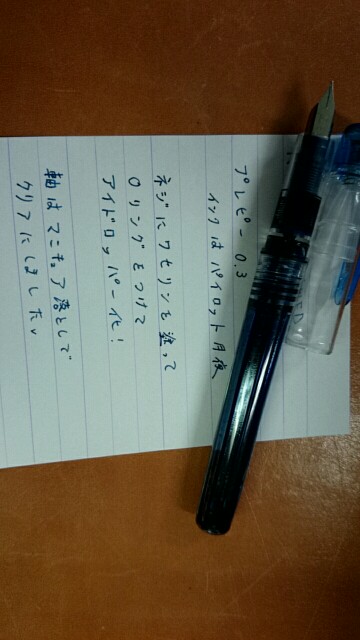 プレピー 0.3
インクはパイロット月夜
ネジにワセリンを塗って
Oリングをつけて
アイドロッパー化！
軸はマニキュア落としで
クリアにしました